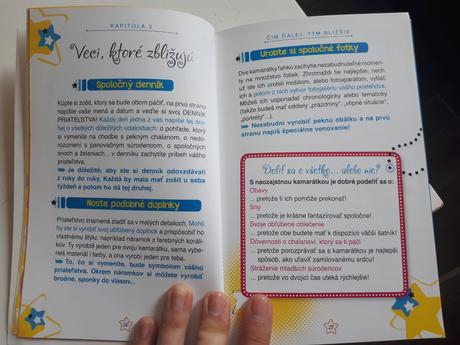 KAPITOLA 2
Veci, ktoré zbližujú
Spoločný denník
Kúpte si zošit, ktorý sa bude obom páčiť, na prvú stranu
napíšte vaše mená a dátum a veďte si svoj DENNÍK
PRIATEĽSTVA! Každý deň jedna z vás napíše tej dru-
hej o všetkých dôležitých udalostiach: o pohľade, ktorý
si vymenila na chodbe s pekným chalanom, o nedo-
rozumení s panovačným súrodencom, o spoločných
snoch a želaniach... v denníku zachytíte príbeh vášho
priateľstva.
Je dôležité, aby ste si denník odovzdávali
z ruky do ruky. Každá by mala mať zošit u seba
týždeň a potom ho dá tej druhej.
Noste podobné doplnky
Priateľstvo znamená zladiť sa v malých detailoch. Mohli
by ste si vyrobiť svoj obľúbený doplnok a prispôsobiť ho
vlastnému štýlu: napríklad náramok z farebných koráli-
kov. Ty vyrobíš jeden pre svoju kamarátku, sama vybe-
rieš materiál i farby, a ona vyrobí jeden pre teba.
To, čo si vymeníte, bude symbolom vášho
priateľstva. Okrem náramkov si môžete vyrobiť
brošne, sponky do vlasov...
26
ČÍM ĎALEJ, TÝM BLIŽŠIE
Urobte si spoločné fotky
Dve kamarátky ľahko zachytia nezabudnuteľné momen-
ty na množstvo fotiek. Zhromaždi tie najlepšie, nech
už ste ich urobili mobilom, alebo fotoaparátom, vytlač
ich a potom z nich vytvor fotogalériu vášho priateľstva.
Môžeš ich usporiadať chronologicky alebo tematicky
(takže budeš mať oddiely „prázdniny", „vtipné situácie",
„portréty"...).
Nezabudni vyrobiť peknú obálku a na prvú
stranu napíš špeciálne venovanie!
Deliť sa o všetko... alebo nie?
S naozajstnou kamarátkou je dobré podeliť sa o:
Obavy
... pretože tí ich pomôže prekonať!
Sny
... pretože je krásne fantazírovať spoločne!
Svoje obľúbené oblečenie
... pretože obe budete mať k dispozícii väčší šatník!
Dôvernosti o chalanovi, ktorý sa ti páči
... pretože porozprávať sa s kamarátkou je najlepší
spôsob, ako uľaviť zamilovanému srdcu!
Stráženie mladších súrodencov
... pretože vo dvojici čas uteká rýchlejšie!
27